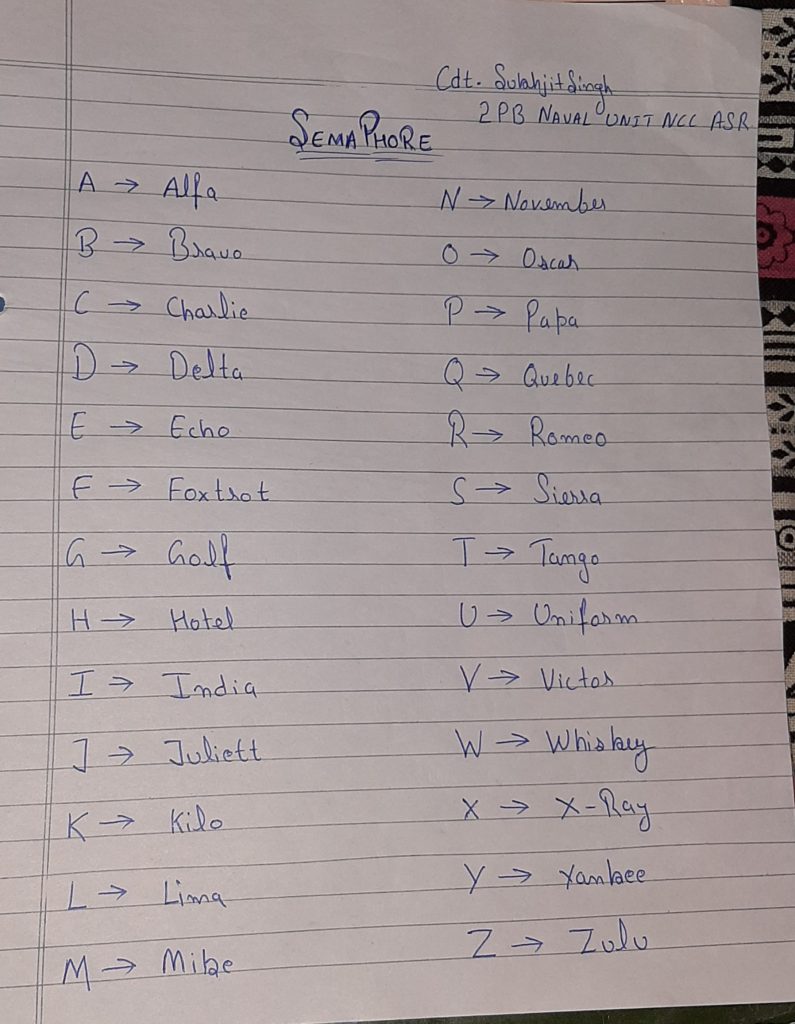 Cdt. Sukhjit Singh
2 PB NAVAL UNIT NCC ASR
SEMAPHORE
A → Alfa
B → Bravo
C → Charlie
D → Delta
E → Echo
F → Foxtrot
G → Golf
H → Hotel
I → India
J → Juliett
K → Kilo
L → Lima
M → Mike
N → November
O → Oscar
P → Papa
Q → Quebec
R → Romeo
S → Sierra
T → Tango
U → Uniform
V → Victor
W → Whiskey
X → X-Ray
Y → Yankee
Z → Zulu